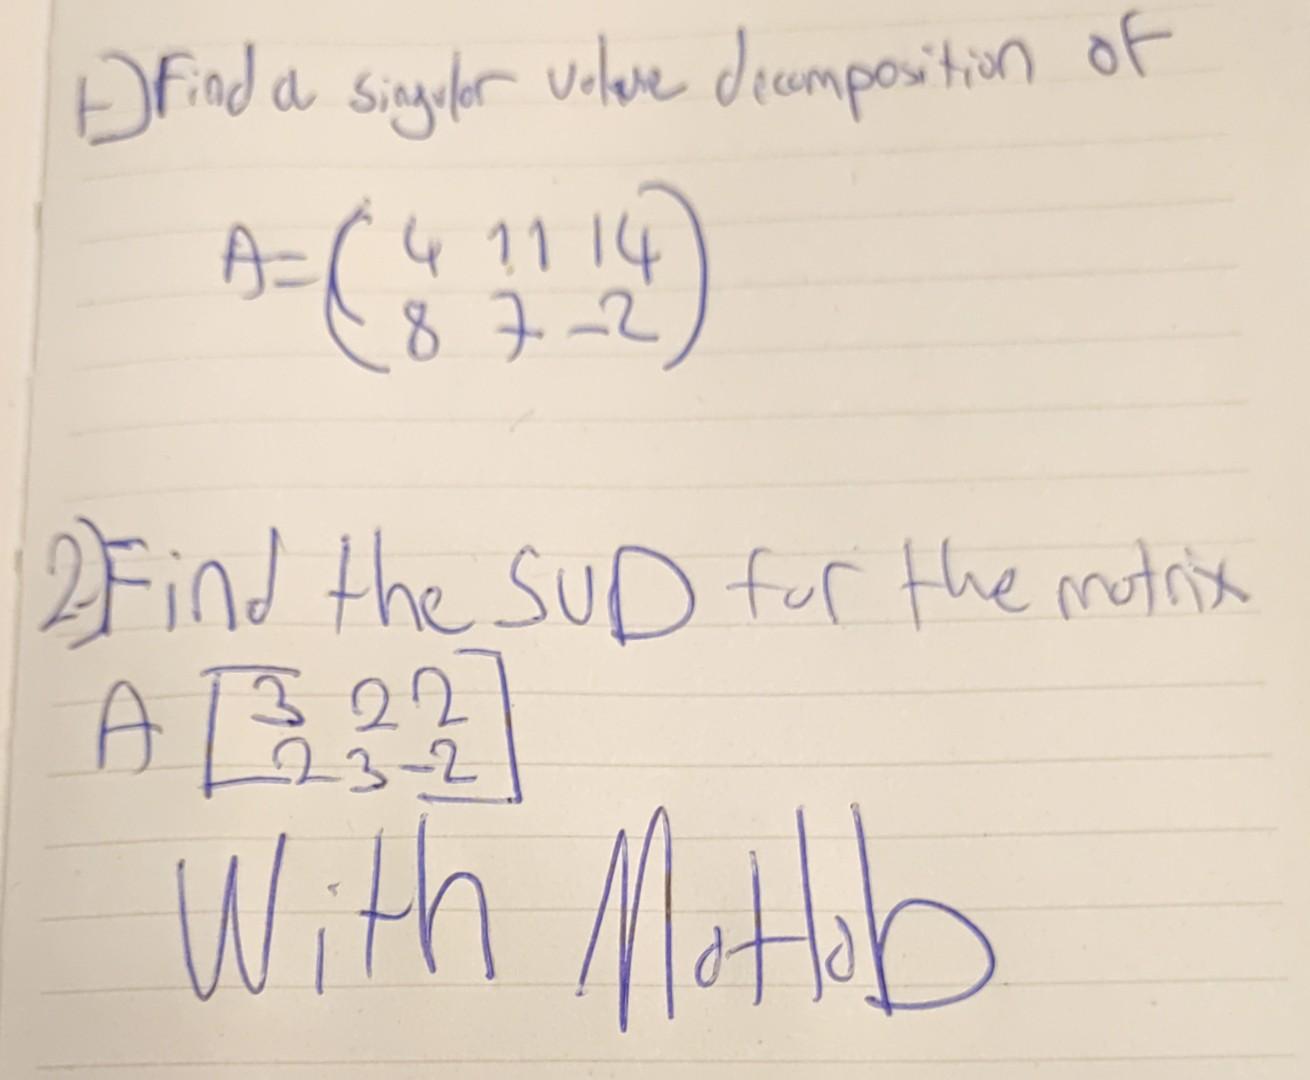 1-) Find a singular value decomposition of
A = ( 4 11 14
8 7 -2 )
2-) Find the SVD for the matrix
A [ 3 2 2
2 3 -2 ]
With Matlab